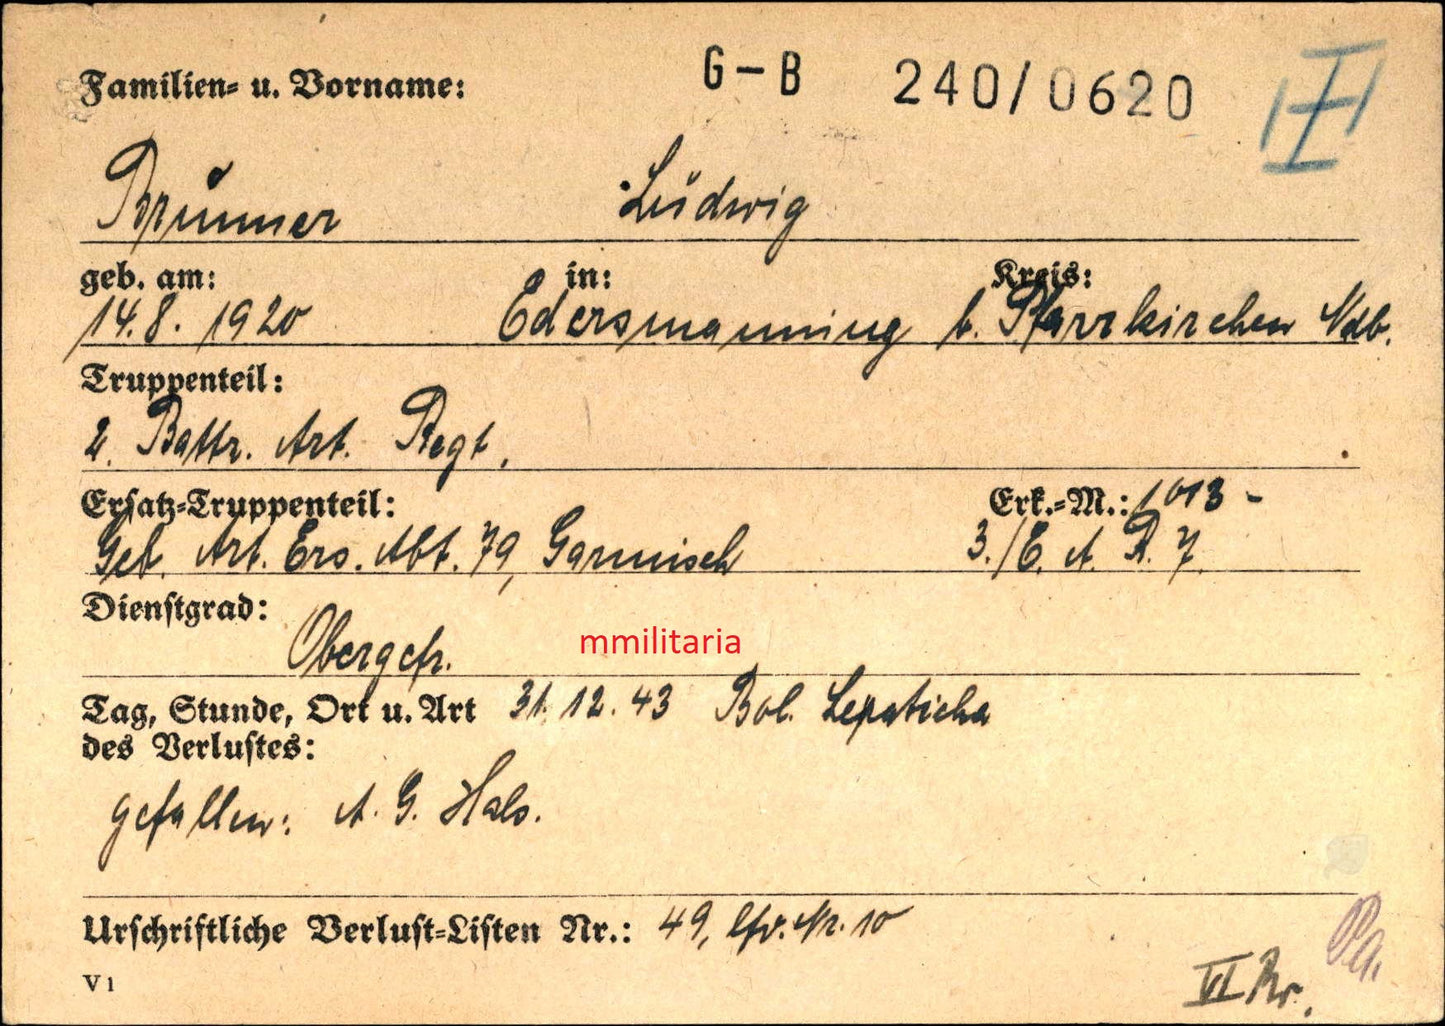 G-B 240/0620
Familien= u. Vorname:
Brunner Ludwig
geb. am: in: Kreis:
14.8. 1920 Edersmanning b. Pfarrkirchen Ndb.
Truppenteil:
2. Battr. Art. Regt.
Ersatz=Truppenteil: Erk.=M.: 1013 -
Geb. Art. Ers. Abt. 79, Garmisch 3./E. A. R. 7.
Dienstgrad:
Obergefr.
mmilitaria
Tag, Stunde, Ort u. Art 31.12.43 Bol. Lepaticha
des Verlustes:
gefallen: A. G. Hals.
Urschriftliche Verlust=Listen Nr.: 49, lfd. Nr. 10
V 1
VI